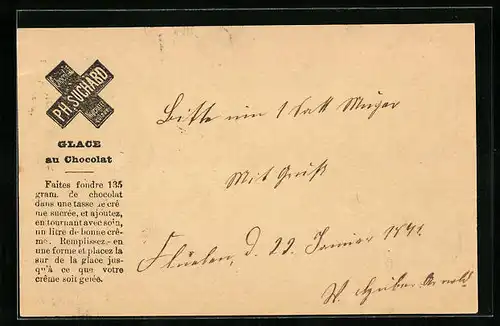 PH. SUCHARD
GLACE
au Chocolat
Faites fondre 135
gram. de chocolat
dans une tasse de crê
me sucrée, et ajoutez,
en tournant avec soin,
un litre de bonne crê-
me. Remplissez-en
une forme et placez la
sur de la glace jus-
qu'à ce que votre
crême soit gelée.
Bitte um 1 Sack
Mit Gruß
Flüelen, d. 22. Januar